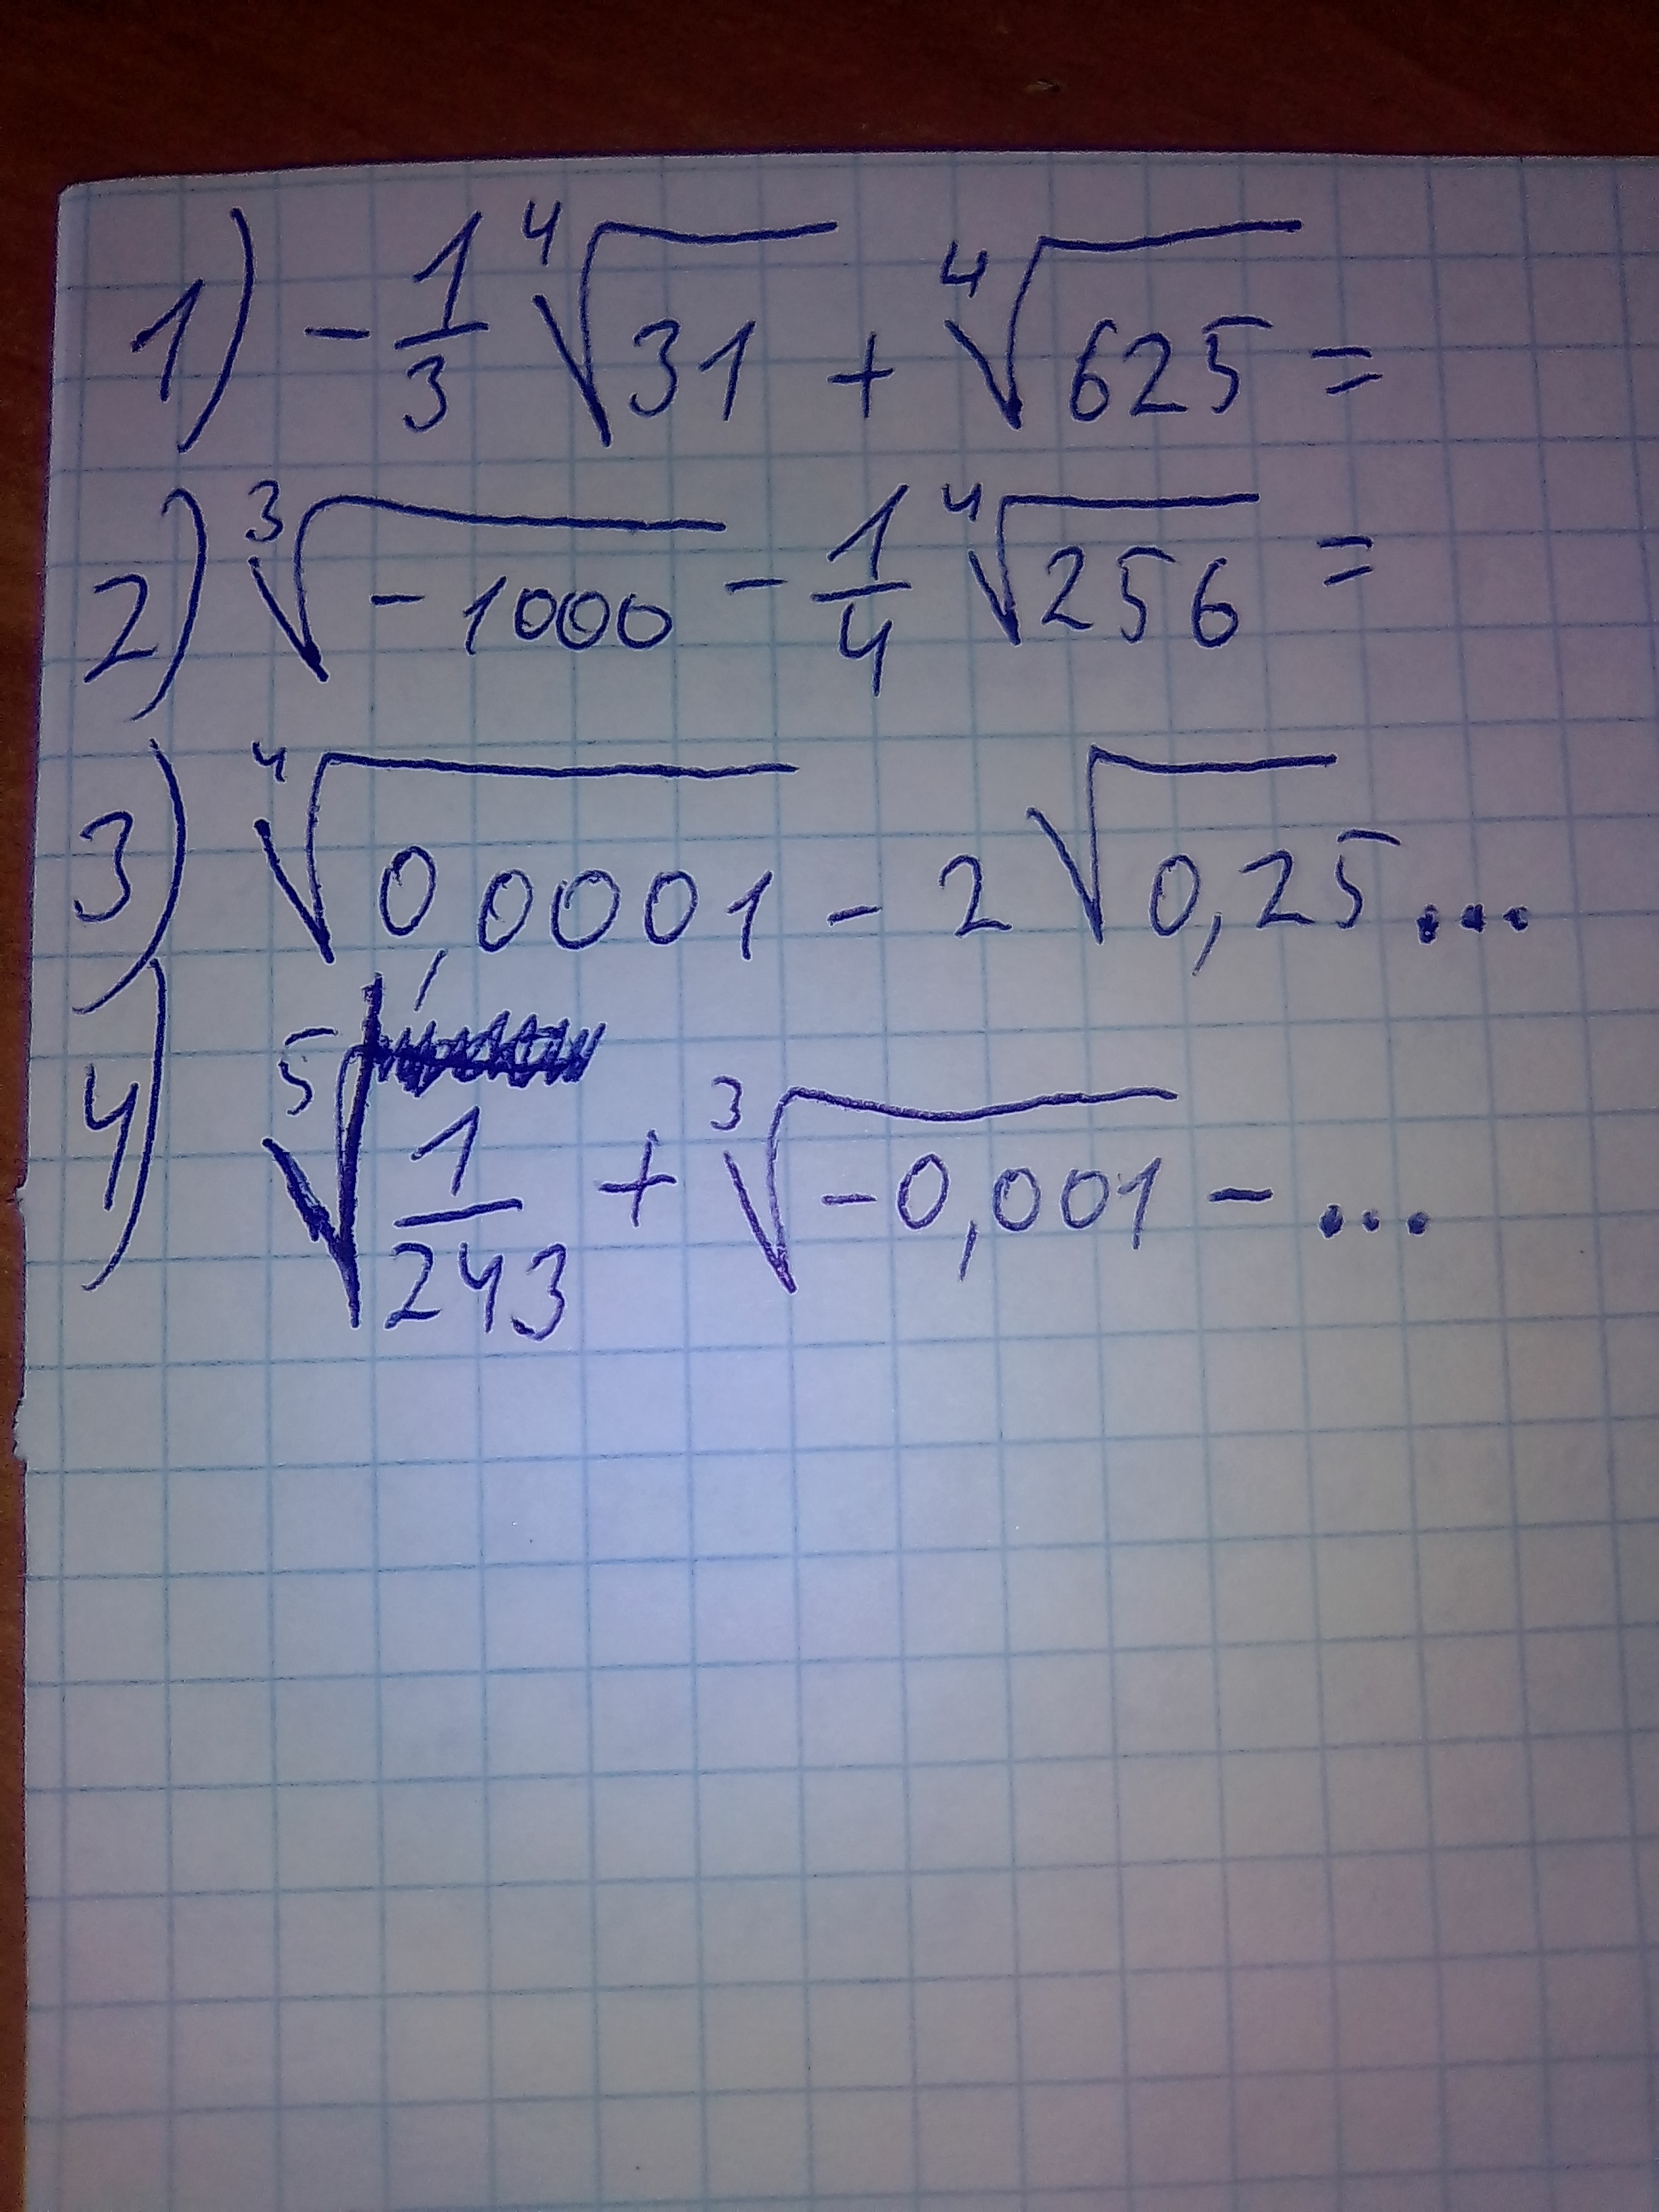 1) -1/3 ⁴√31 + ⁴√625 =
2) ³√-1000 - 1/4 ⁴√256 =
3) ⁴√0,0001 - 2√0,25...
4) ⁵√1/243 + ³√-0,001 - ...